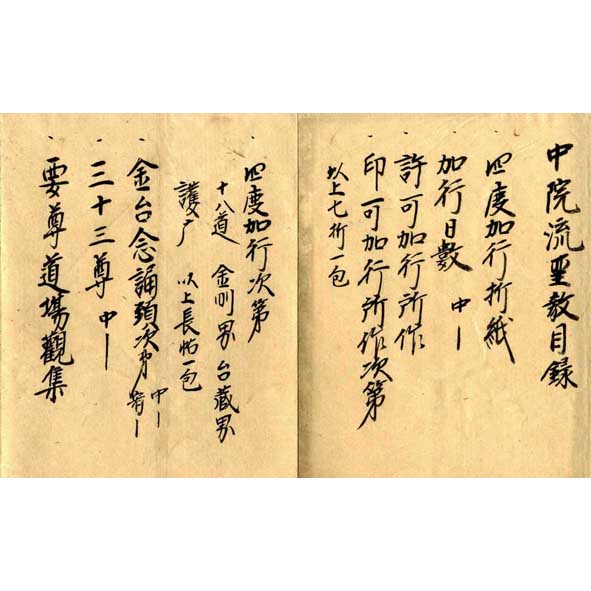 中院流聖教目録
四度加行折紙
加行日數 中〡
許可加行所作
印可加行所作次第
以上七折一包
四度加行次第
十八道 金剛界 台蔵界
護广 以上長帖一包
金台念誦頸次第 中〡
三十三尊 中〡
要尊道場觀集